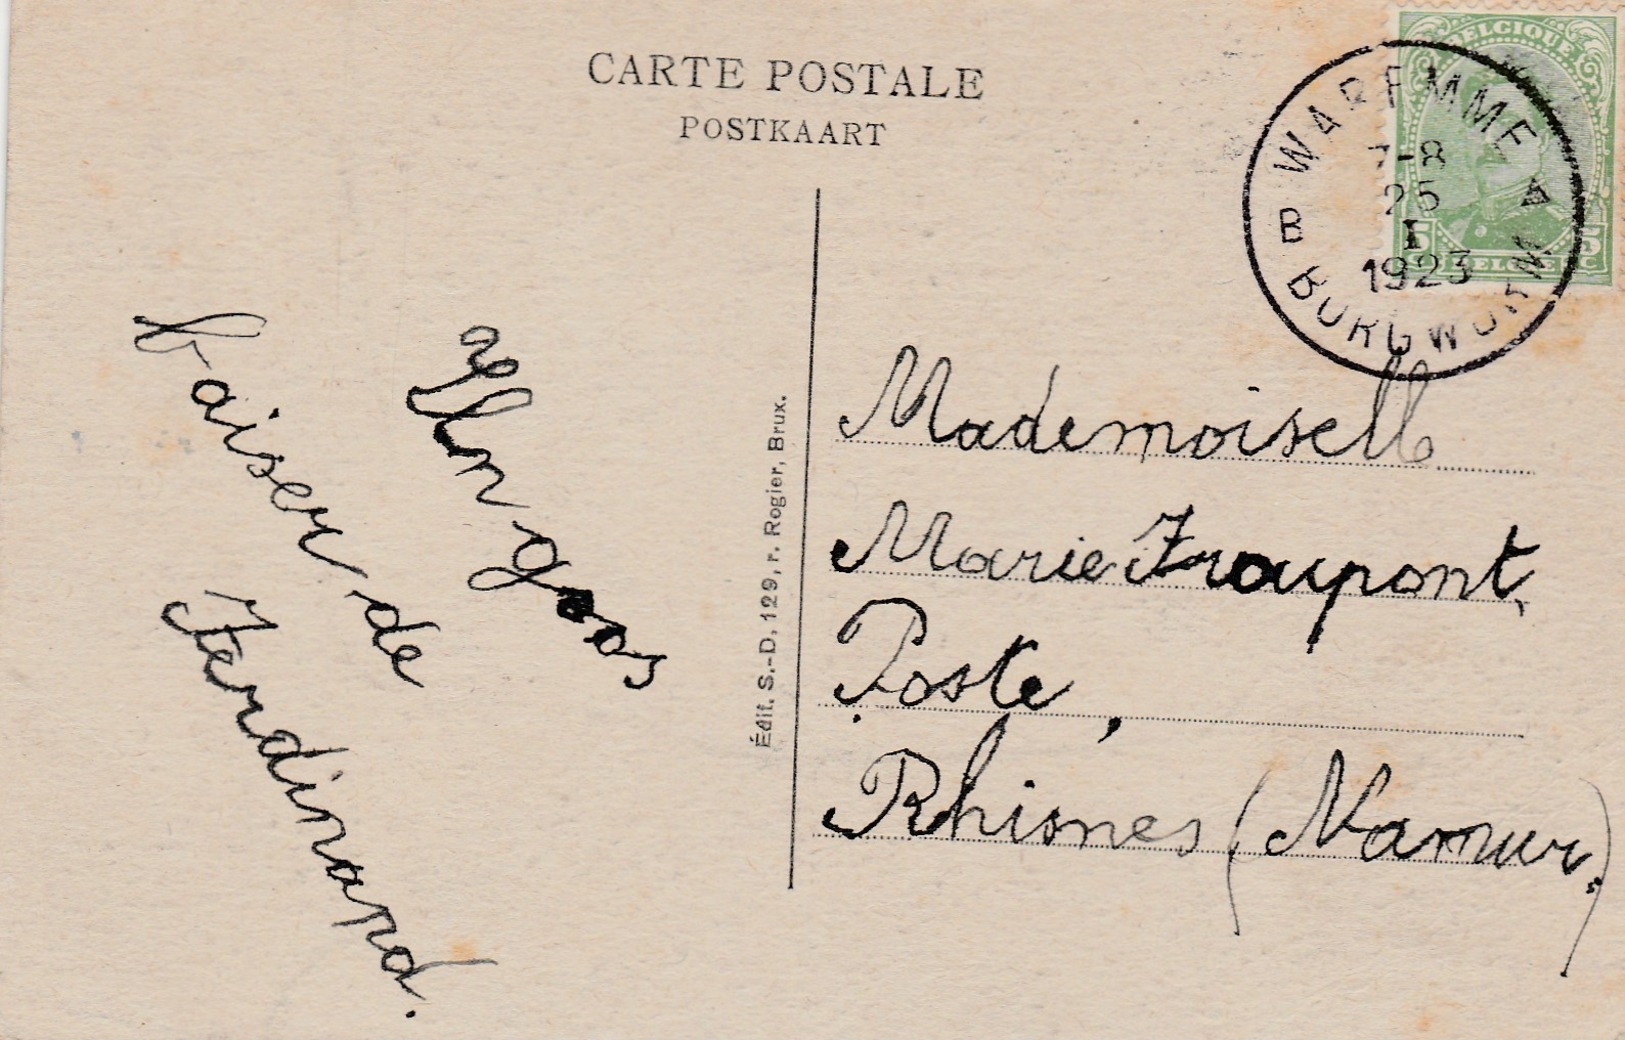 CARTE POSTALE
POSTKAART
BELGIQUE
5 5
BELGIË
WAREMME
7-8
25
I
1923
B A
BORGWORM
Un gros
baiser de
Ferdinand.
Édit. S.-D. 129, r. Rogier, Brux.
Mademoiselle
Marie Fraupont,
Poste,
Rhisnes (Namur.)